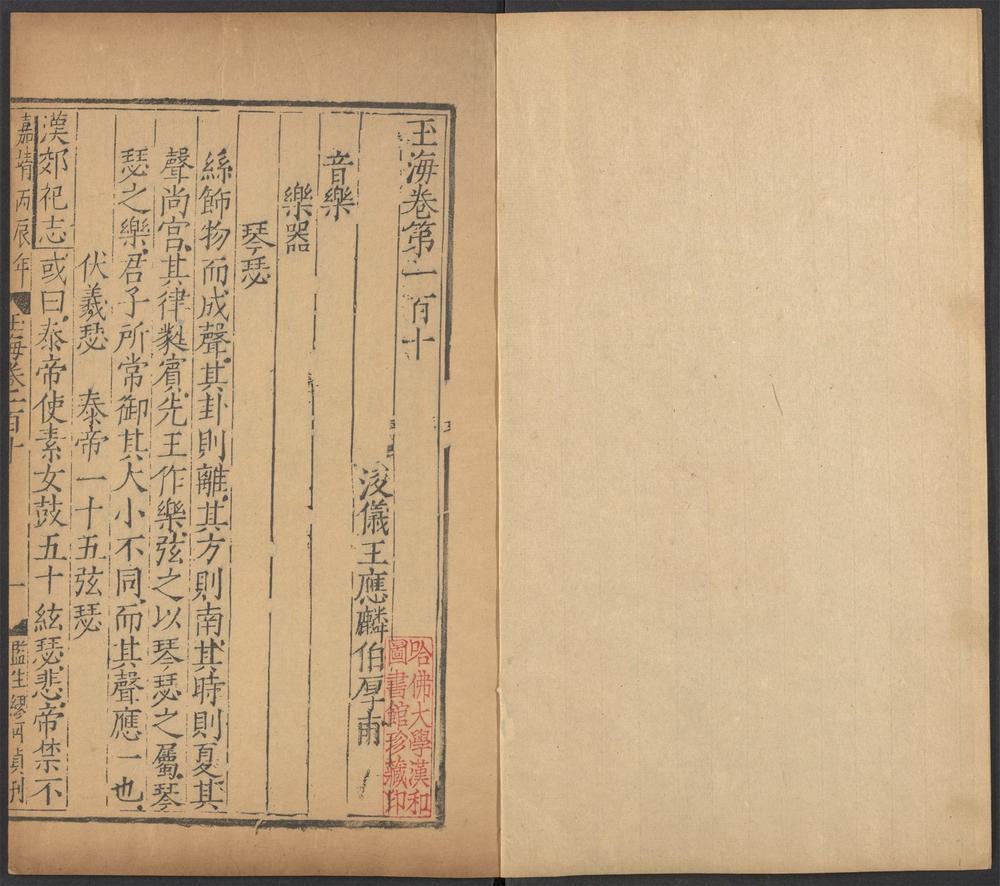 玉海卷第一百十
浚儀王應麟伯厚甫
音樂
樂器
琴瑟
絲飾物而成聲其卦則離其方則南其時則夏其
聲尚宮其律蕤賓先王作樂弦之以琴瑟之屬琴
瑟之樂君子所常御其大小不同而其聲應一也
伏羲瑟 泰帝一十五弦瑟
漢郊祀志或曰泰帝使素女鼓五十絃瑟悲帝禁不
嘉靖丙辰年 玉海卷一百十 一 監生繆 貞刊
哈佛大學漢和
圖書館珍藏印